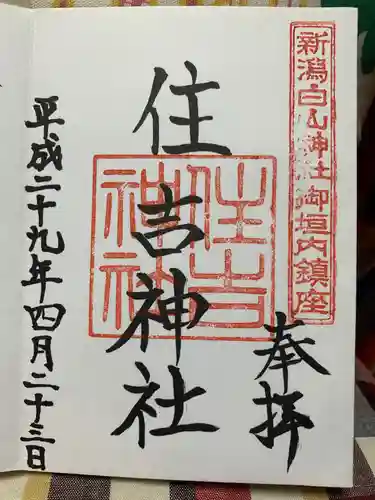 新潟白山神社御垣内鎮座
奉拝
住吉神社
住吉神社
平成二十九年四月二十三日